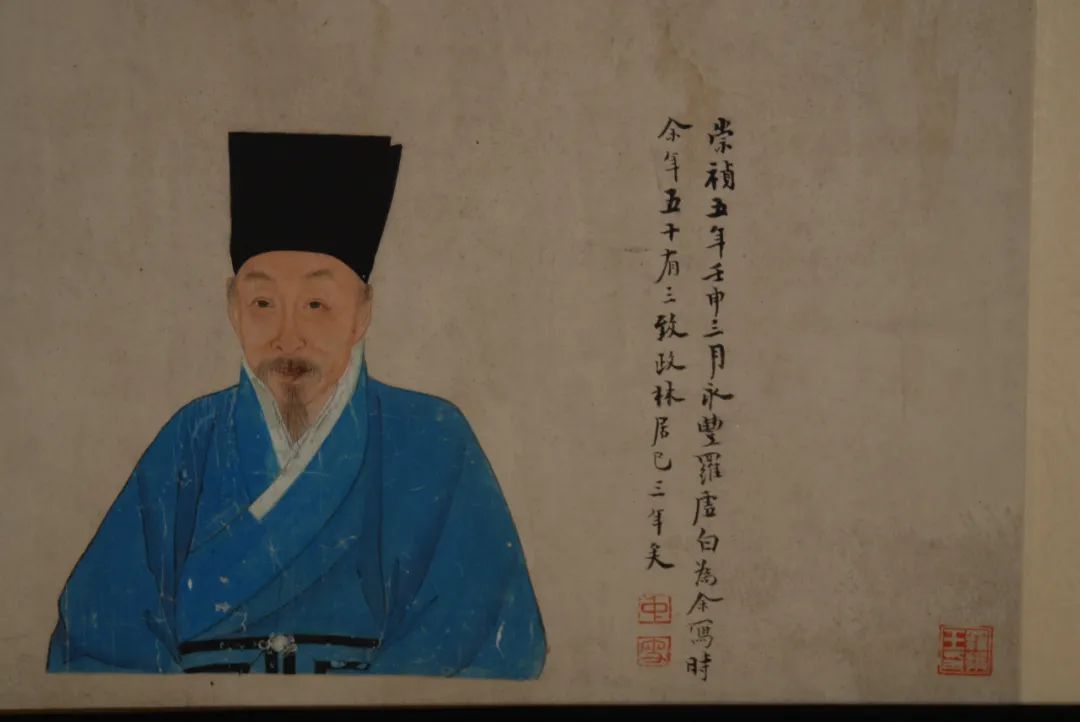 崇禎五年壬申三月永豐羅虛白為余寫時
余年五十有三致政林居已三年矣